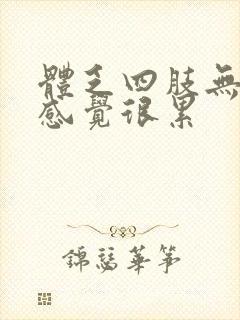 體乏四肢無
感覺很累
錦瑟華箏